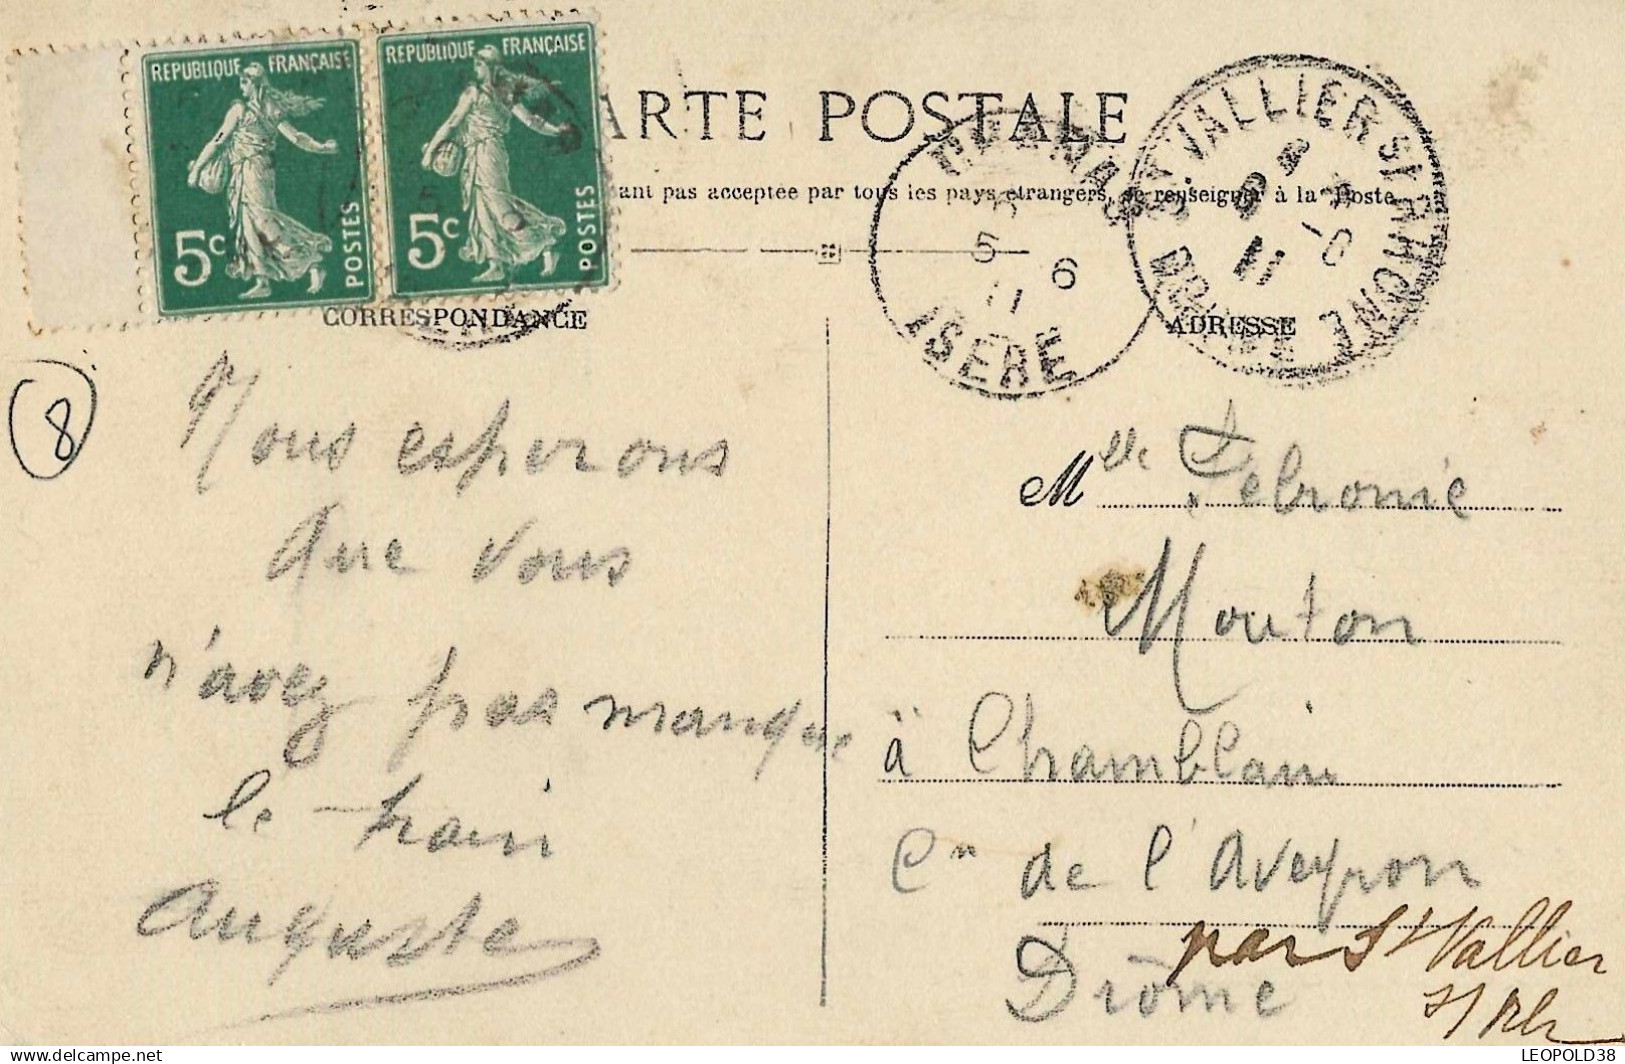 REPUBLIQUE FRANÇAISE
5c POSTES
REPUBLIQUE FRANÇAISE
5c POSTES
ARTE POSTALE
tant pas acceptée par tous les pays étrangers, se renseigner à la Poste
ISERE
5 6
11
ST VALLIER S/ RHONE
8
11
CORRESPONDANCE
ADRESSE
8
Nous esperons
que vous
n'avez pas manque
le train
Auguste
Mlle Febronie
Mouton
à Chamblain
Cn de l'Aveyron
Drôme
par St Vallier
s/ Rh
delcampe.net
LEOPOLD38